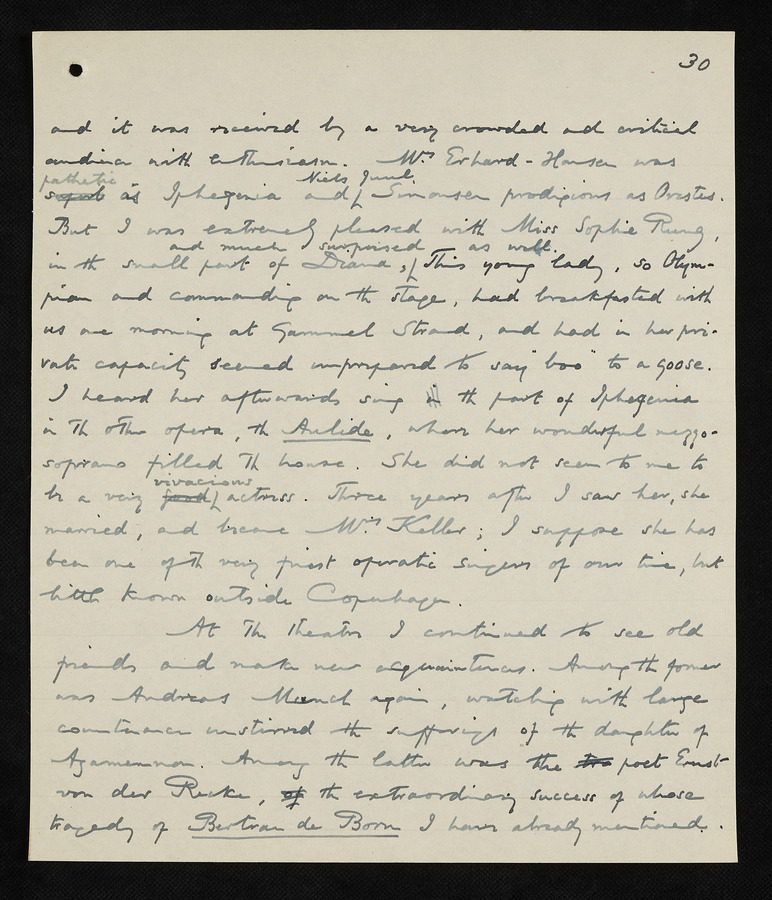 30
and it was received by a very crowded and critical
audience with enthusiasm. Mrs Erhard-Hansen was
pathetic Niels Juul
as Iphegenia and Simonsen prodigious as Orestes.
But I was extremely pleased with Miss Sophie Rung,
and much surprised as well.
in th small part of Diana, This young lady, so Olym-
pian and commanding on th stage, had breakfasted with
us one morning at Gammel Strand, and had in her pri-
vate capacity seemed unprepared to say "boo" to a goose.
I heard her afterwards sing th part of Iphegenia
in th other opera, th Aulide, where her wonderful mezzo-
soprano filled th house. She did not seem to me to
vivacious
be a very good actress. Three years after I saw her, she
married, and became Mrs Keller; I suppose she has
been one of th very finest operatic singers of our time, but
little known outside Copenhagen.
At th theatre I continued to see old
friends and make new acquaintances. Among th former
was Andreas Munch again, watching with large
countenance unstirred th sufferings of th daughter of
Agamemnon. Among th latter was the poet Ernst
von der Recke, of th extraordinary success of whose
tragedy of Bertran de Born I have already mentioned.